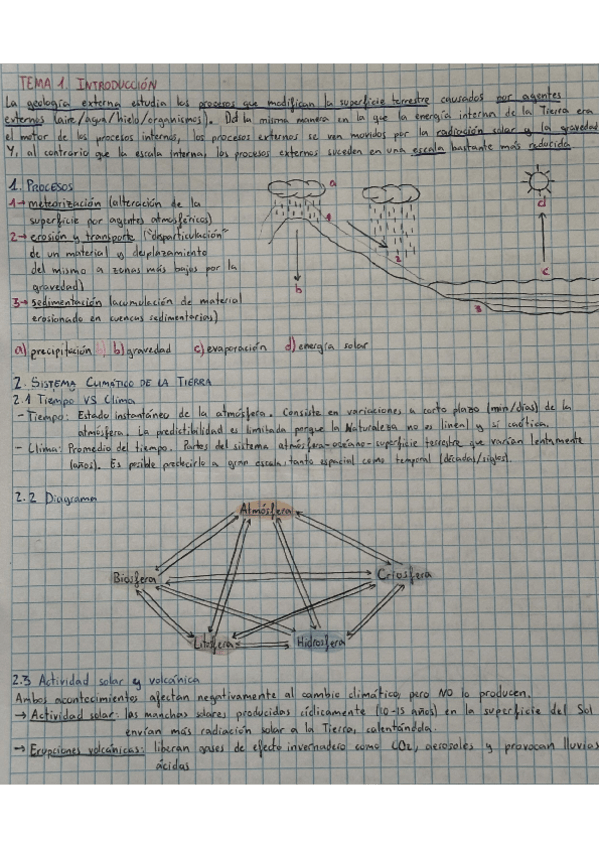 TEMA 1. INTRODUCCIÓN
La geología externa estudia los procesos que modifican la superficie terrestre causados por agentes
externos (aire/agua/hielo/organismos). Del la misma manera en la que la energía interna de la Tierra era
el motor de los procesos internos, los procesos externos se ven movidos por la radiación solar y la gravedad
Y, al contrario que la escala interna, los procesos externos suceden en una escala bastante más reducida
1. PROCESOS
1→ meteorización (alteración de la
superficie por agentes atmosféricos)
2→ erosión y transporte ("disparticulación"
de un material y desplazamiento
del mismo a zonas más bajas por la
gravedad)
3→ sedimentación (acumulación de material
erosionado en cuencas sedimentarias)
a
1
2
b
d
c
3
a) precipitación b) gravedad c) evaporación d) energía solar
2. SISTEMA CLIMÁTICO DE LA TIERRA
2.1 Tiempo VS Clima
- Tiempo: Estado instantáneo de la atmósfera. Consiste en variaciones a corto plazo (min/días) de la
atmósfera. La predictibilidad es limitada porque la Naturaleza no es lineal y sí caótica.
- Clima: Promedio del tiempo. Partes del sistema atmósfera-océano-superficie terrestre que varían lentamente
(años). Es posible predecirlo a gran escala, tanto espacial como temporal (décadas/siglos).
2.2 Diagrama
Atmósfera
Biosfera
Criosfera
Litosfera
Hidrosfera
2.3 Actividad solar y volcánica
Ambos acontecimientos afectan negativamente al cambio climático, pero NO lo producen.
→ Actividad solar: las manchas solares producidas cíclicamente (10-15 años) en la superficie del Sol
envían más radiación solar a la Tierra, calentándola.
→ Erupciones volcánicas: liberan gases de efecto invernadero como CO2, aerosoles y provocan lluvias
ácidas